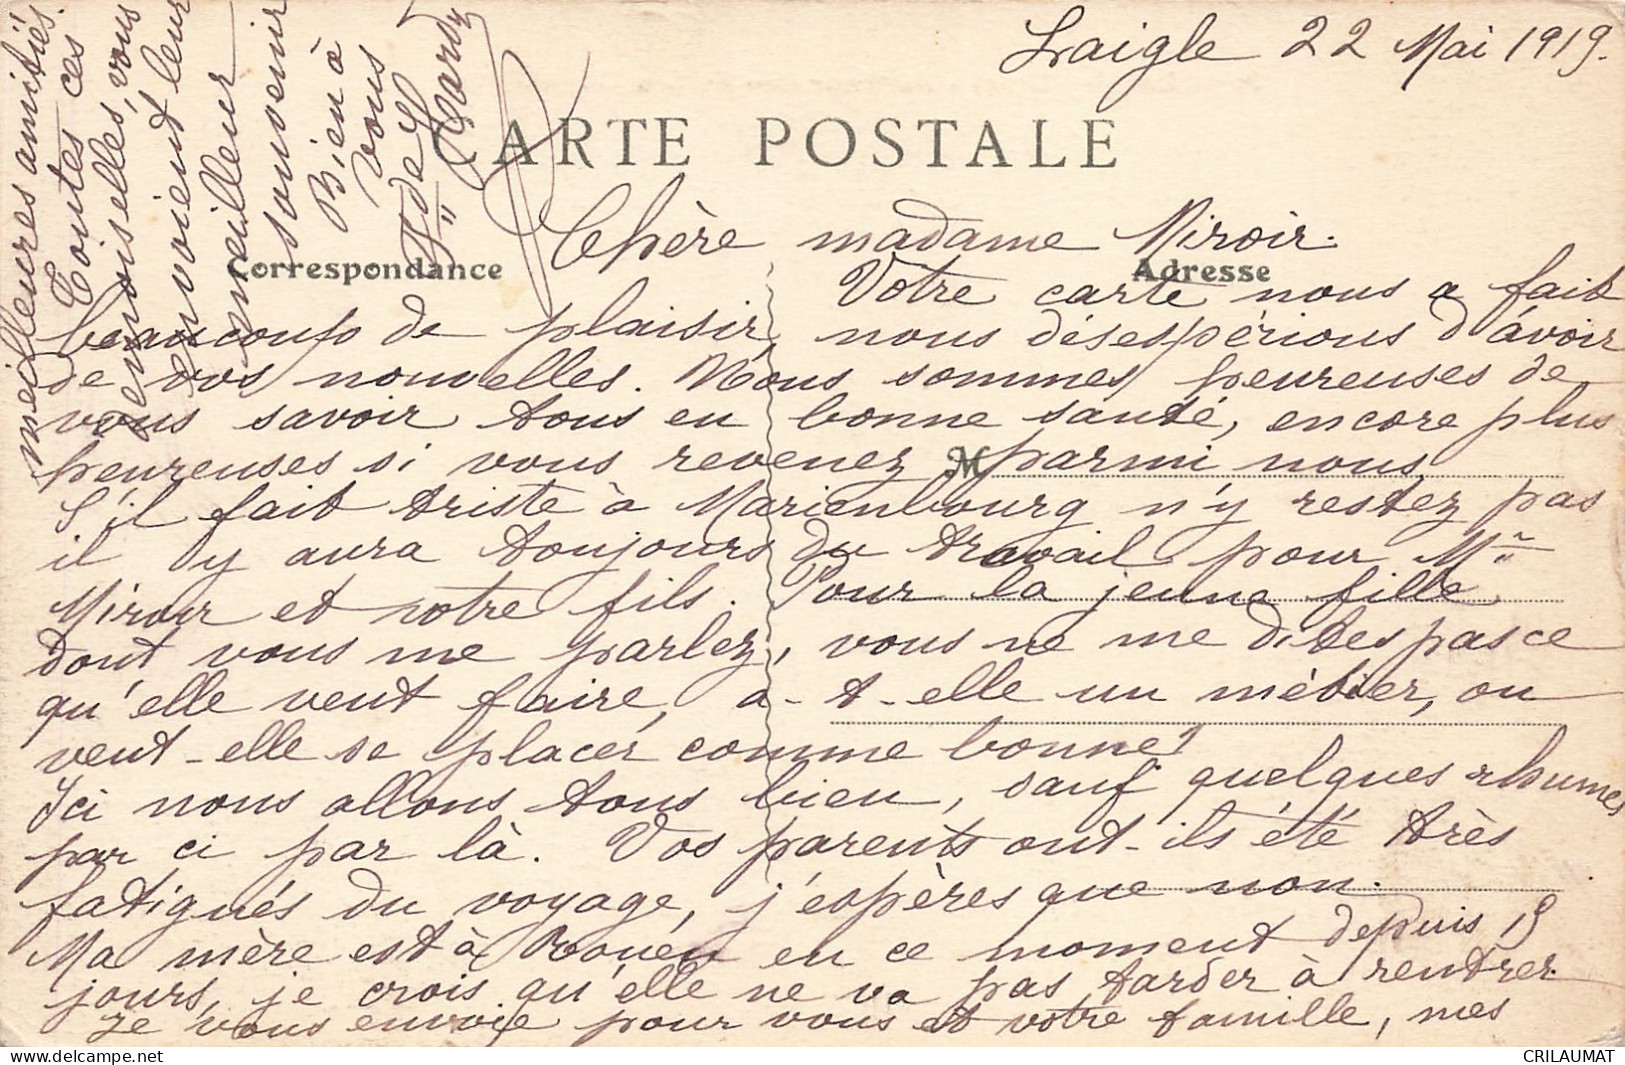 Laigle 22 Mai 1919.
CARTE POSTALE
Chère madame Miroir.
Correspondance
Adresse
Votre carte nous a fait
beaucoup de plaisir, nous désespérions d'avoir
de vos nouvelles. Nous sommes heureuses de
vous savoir tous en bonne santé, encore plus
heureuses si vous revenez parmi nous
M
S'il fait triste à Marienbourg n'y restez pas
il y aura toujours du travail pour Mr
Miroir et votre fils. Pour la jeune fille
dont vous me parlez, vous ne me dites pas ce
qu'elle veut faire, a-t-elle un métier, ou
veut-elle se placer comme bonne?
Ici nous allons tous bien, sauf quelques rhumes
par ci par là. Vos parents ont-ils été très
fatigués du voyage, j'espères que non.
Ma mère est à Rouen en ce moment depuis 15
jours, je crois qu'elle ne va pas tarder à rentrer.
Je vous envoie pour vous et votre famille, mes
meilleures amitiés.
Toutes ces
demoiselles, vous
envoient leur
meilleur
souvenir
Bien à
vous